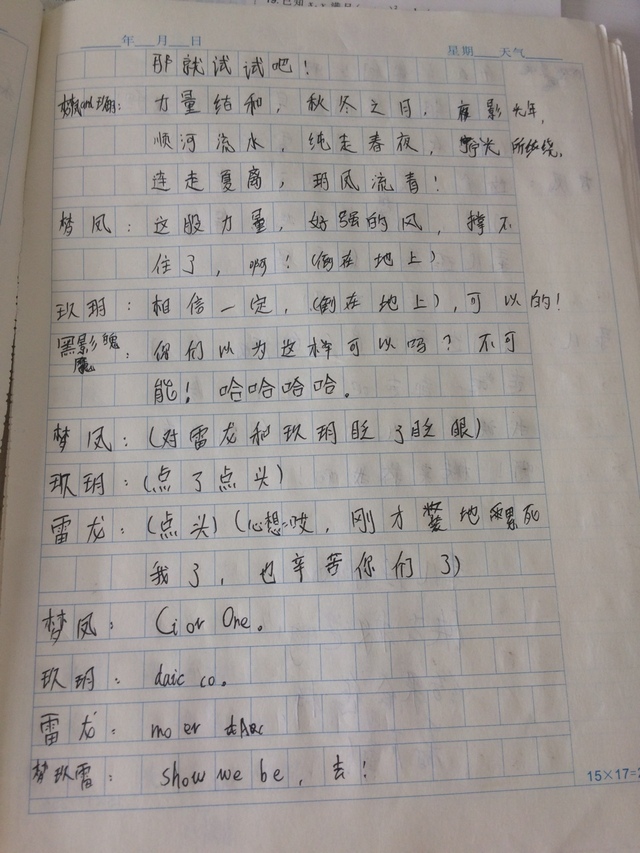 年 月 日 星期 天气
那就试试吧！
力量结和，秋冬之月，夜影光年，
顺河流水，纯走春夜，所缠绕，
连走夏离，玥风流青！
梦凤：这股力量，好强的风，撑不
住了，啊！（倒在地上）
玖玥：相信一定，（倒在地上），可以的！
黑影魄魔：你们以为这样可以吗？不可
能！哈哈哈哈。
梦凤：（对雷龙和玖玥眨了眨眼）
玖玥：（点了点头）
雷龙：（点头）（心想：哎，刚才装地累死
我了，也辛苦你们了）
梦凤：Ci or One。
玖玥：daic co。
雷龙：mo er
梦玖雷：show we be，去！
15×17=2